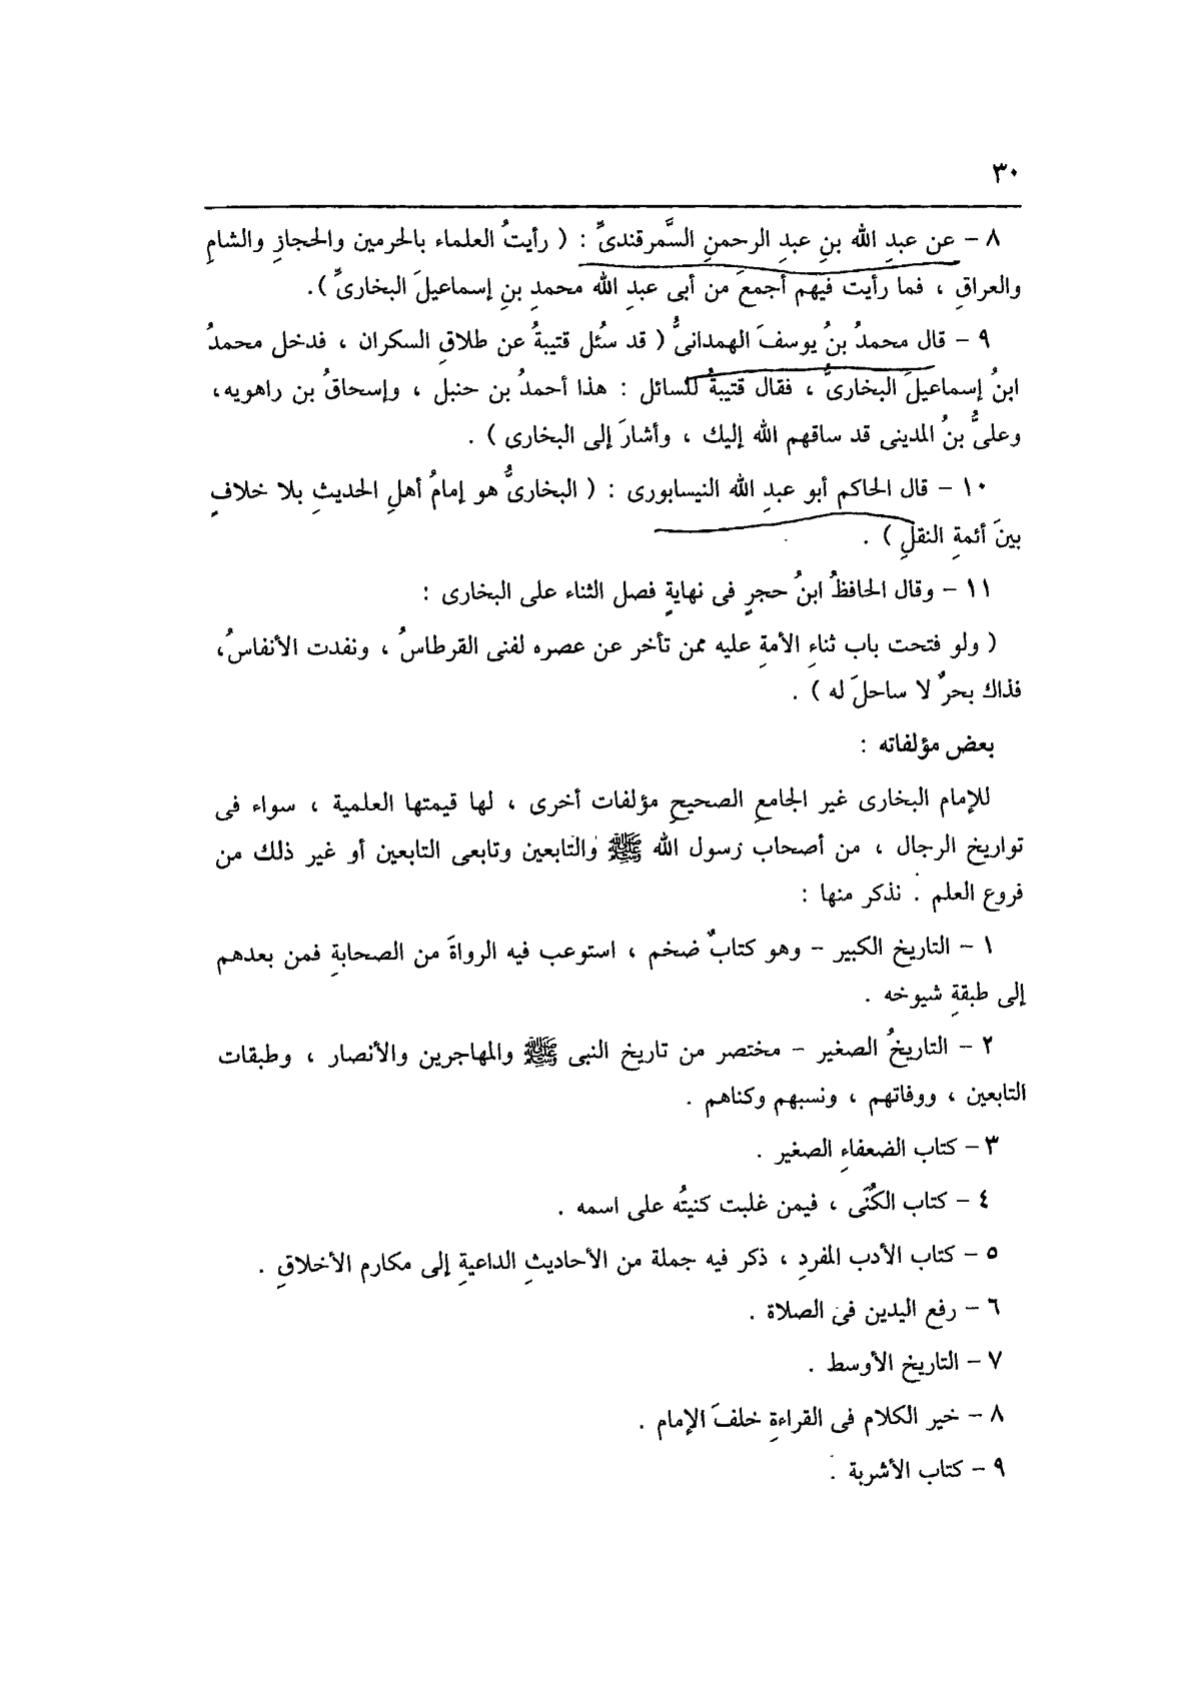 ٣٠
٨ - عن عبدِ الله بنِ عبدِ الرحمنِ السَّمرقندىِّ : ( رأيتُ العلماء بالحرمين والحجازِ والشامِ
والعراقِ ، فما رأيت فيهم أجمعَ من أبى عبدِ الله محمدِ بنِ إسماعيلَ البخارىِّ ) .
٩ - قال محمدُ بنُ يوسفَ الهمدانىُّ ( قد سئل قتيبةُ عن طلاقِ السكران ، فدخل محمدُ
ابنُ إسماعيلَ البخارىُّ ، فقال قتيبةُ للسائل : هذا أحمدُ بن حنبل ، وإسحاقُ بن راهويه ،
وعلىُّ بنُ المدينى قد ساقهم الله إليك ، وأشارَ إلى البخارى ) .
١٠ - قال الحاكم أبو عبدِ الله النيسابورى : ( البخارىُّ هو إمامُ أهلِ الحديثِ بلا خلافٍ
بينَ أئمةِ النقلِ ) .
١١ - وقال الحافظُ ابنُ حجرٍ فى نهايةِ فصل الثناء على البخارى :
( ولو فتحت باب ثناءِ الأمةِ عليه ممن تأخر عن عصره لفنى القرطاسُ ، ونفدت الأنفاسُ ،
فذاك بحرٌ لا ساحلَ له ) .
بعض مؤلفاته :
للإمام البخارى غير الجامعِ الصحيحِ مؤلفات أخرى ، لها قيمتها العلمية ، سواء فى
تواريخ الرجال ، من أصحاب رسول الله ﷺ والتابعين وتابعى التابعين أو غير ذلك من
فروع العلم . نذكر منها :
١ - التاريخ الكبير - وهو كتابٌ ضخم ، استوعب فيه الرواةَ من الصحابةِ فمن بعدهم
إلى طبقةِ شيوخه .
٢ - التاريخُ الصغير - مختصر من تاريخ النبى ﷺ والمهاجرين والأنصار ، وطبقات
التابعين ، ووفاتهم ، ونسبهم وكناهم .
٣ - كتاب الضعفاءِ الصغير .
٤ - كتاب الكُنَى ، فيمن غلبت كنيتُه على اسمه .
٥ - كتاب الأدب المفردِ ، ذكر فيه جملة من الأحاديثِ الداعيةِ إلى مكارم الأخلاقِ .
٦ - رفع اليدين فى الصلاة .
٧ - التاريخ الأوسط .
٨ - خير الكلام فى القراءةِ خلفَ الإمام .
٩ - كتاب الأشربة .